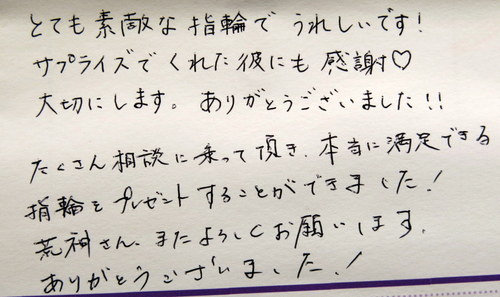 とても素敵な指輪でうれしいです!
サプライズでくれた彼にも感謝♡
大切にします。ありがとうございました!!
たくさん相談に乗って頂き、本当に満足できる
指輪をプレゼントすることができました!
荒神さん、またよろしくお願いします。
ありがとうございました!